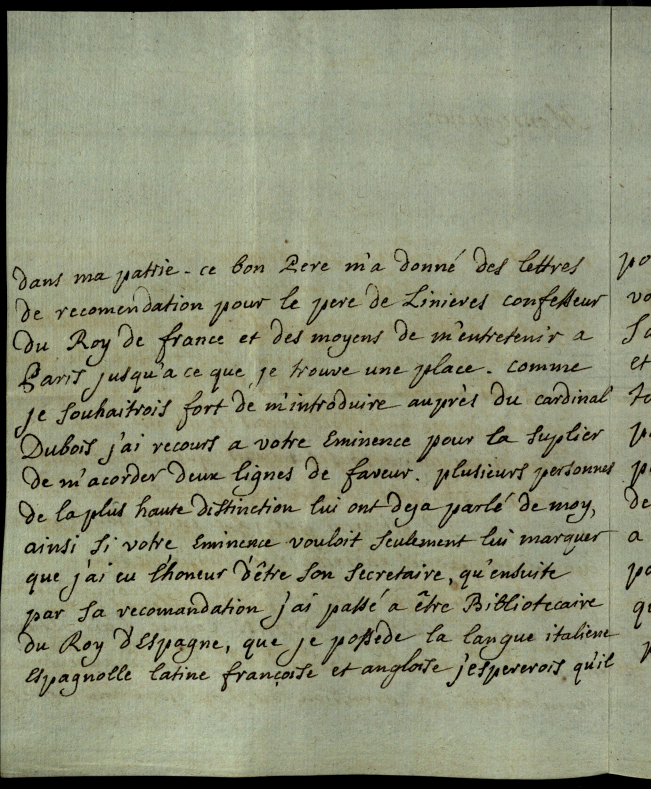 dans ma patrie. ce bon Pere m'a donné des lettres
de recomendation pour le pere de Linieres confesseur
du Roy de france et des moyens de m'entretenir a
Paris jusqu'a ce que je trouve une place. comme
je souhaitrois fort de m'introduire auprès du cardinal
Dubois j'ai recours a votre Eminence pour la suplier
de m'acorder deux lignes de faveur. plusieurs personnes
de la plus haute distinction lui ont deja parlé de moy,
ainsi si votre Eminence vouloit seulement lui marquer
que j'ai eu l'honeur d'être son secretaire, qu'ensuite
par sa recomandation j'ai passé a être Bibliotecaire
du Roy d'Espagne, que je possede la langue italiene
espagnolle latine françoise et angloise j'espererois qu'il